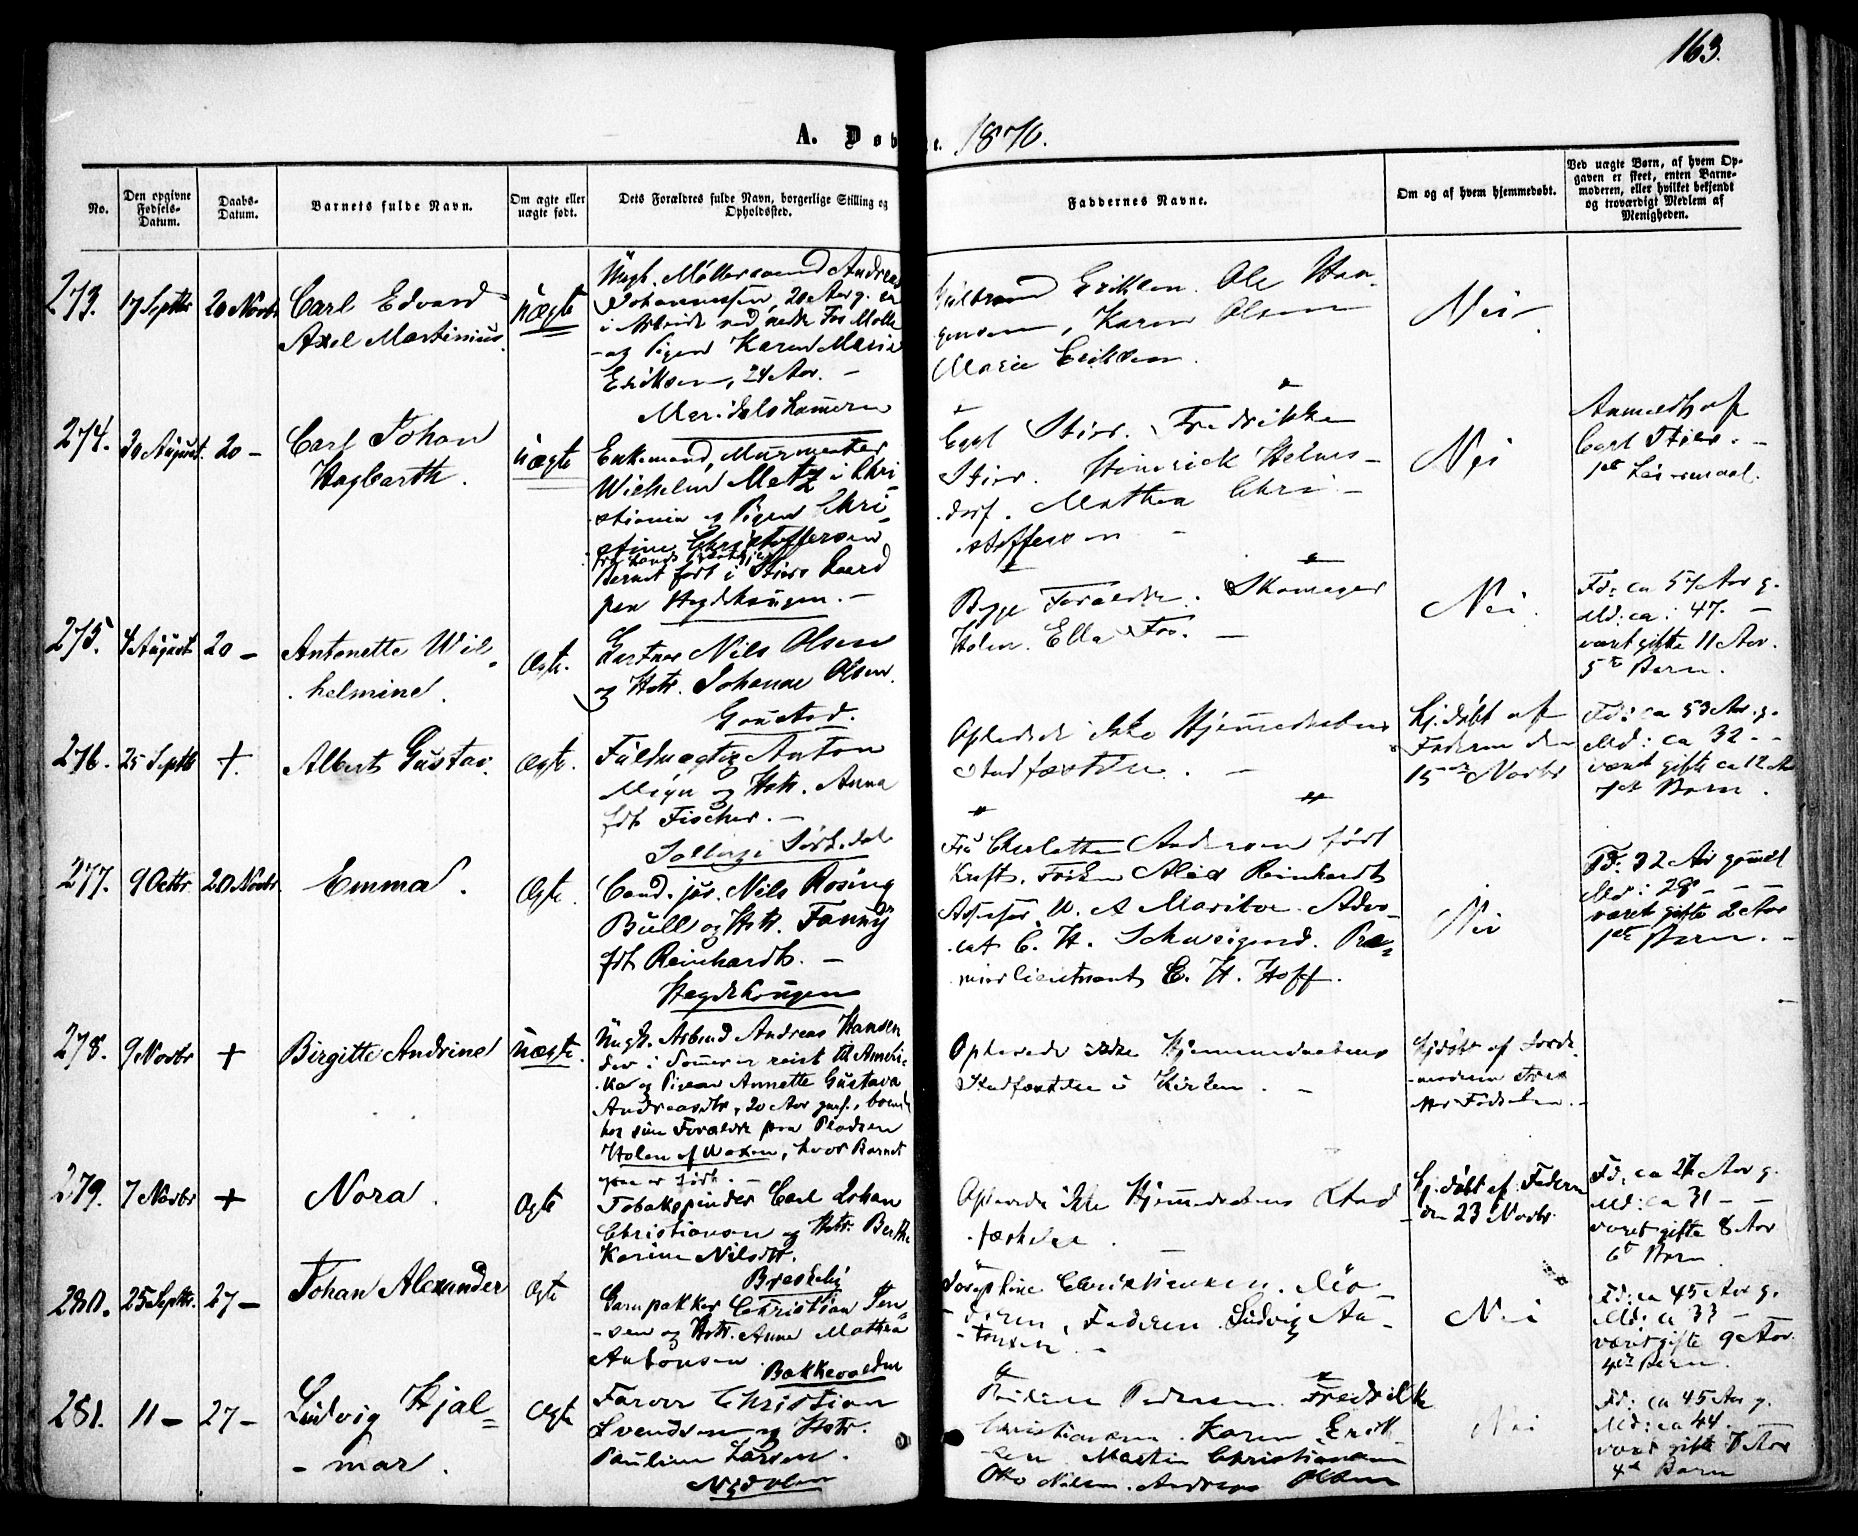 163.
A. Døb
e. 1870.
No.
Den opgivne Fødsels-Datum.
Daabs-Datum.
Barnets fulde Navn.
Om ægte eller uægte født.
Dets Forældres fulde Navn, borgerlige Stilling og Opholdssted.
Faddernes Navne.
Om og af hvem hjemmedøbt.
Ved uægte Børn, af hvem Opgaven er skeet, enten Barnemoderen, eller hvilket bekjendt og troværdigt Medlem af Menigheden.
273. 17 Septbr 20 Novbr Carl Edvard
Axel Martinius.
uægte
Ungk. Møllersvend Andreas
Johannessen, 20 Aar g. er
i Arbeide ved nedre Fos Mølle
og Pigen Karen Marie
Eriksen, 24 Aar. –
Maridalshammern
Guldbrand Eriksen. Ole Haa-
gensen, Karen Olsen
Marie Eriksen.
Nei –
274. 30 August. 20 – Carl Johan
Hagbarth.
uægte
Enkemand, Murmester
Wilhelm Metz i Chri-
stiania og Pigen Chri-
stine Christoffersen
Barnet født i Stiers Gaard
paa Hægdehaugen. –
Carl Stier. Fredrikke
Stier. Hinrick Helms-
dorf. Mathea Chri-
stoffersen –
Nei
Anmeldt af
Carl Stier. –
1st Leiermaal.
275. 4 August 20 – Antonette Wil-
helmine.
Ægte.
Gartner Nils Olsen
og Hstr. Johanne Olsen.
Gaustad.
Begge Forældre. Skomager
Holm. Ella Foss. –
Nei.
Fd: ca 57 Aar g.
Md: ca: 47. –
været gifte 11 Aar.
5te Barn.
276. 25 Septb +. Albert Gustav.
Ægte.
Fuldmægtig Anton
og Hstr. Anna
fdt Fischer. –
i Sørk.dal
Oplevede ikke Hjemmedaabens
Stadfæstelse. –
Hj.døbt af
Faderen den
15de Novbr
Fd: ca 53 Aar g.
Md: ca 32 – –
været gifte ca 12 Aar
Barn.
277. 9 Octbr. 20 Novbr. Emma.
Ægte.
Cand. jur. Nils Rosing
Bull og Hstr. Fanny
fdt Reinhardt. –
Hægdehaugen
Fru Charlotte Andersen født
Kraft. Frøken Alida Reinhardt
Assessor W. A. Advo-
cat C. H. Schweigaard. Pre-
mierlieutnant C. H. Hoff.
Nei
Fd: 32 Aar gammel
Md: 28 – – –
været gifte 2 Aar
1ste Barn. –
278. 9 Novbr + Birgitte Andrine
uægte.
Ungk. Arbmd Andreas Hansen
der i Sommer er reist til Ameri-
ka og Pigen Annette Gustava
Andreasdtr, 20 Aar gml., boende
hos sine Forældre paa Pladsen
Holen af Waxen, hvor Barnet
født. –
Oplevede ikke Hjemmedaabens
Stadfæstelse i Kirken. –
Hjdøbt af Jorde-
moderen strax
efter Fødselen. –
279. 7 Novbr + Nora.
Ægte
Tobakspinder Carl Johan
Christiansen og Hstr. Berthe
Karine Nilsdtr.
Oplevede ikke Hjemmedaabens Stad
fæstelse. –
Hj.døbt af Faderen
den 23 Novbr.
Fd: ca 27 Aar g.
Md: ca 31 – –
været gifte 8 Aar
6te Barn
280. 25 Septbr. 27 – Johan Alexander
Ægte
Garnpakker Christian Jen-
sen og Hstr. Anne Mathea
Antonsen.
Bakkevolden
Josephine Christiansen. Mo-
deren, Faderen. Ludvig An-
tonsen. –
Nei
Fd: ca 45 Aar g.
Md: ca 33 –
været gifte 9 Aar.
4de Barn.
281. 11 – 27 – Ludvig Hjal-
mar.
Ægte
Farver Christian
Svendsen og Hstr.
Pauline Larsen.
Nydalen
Pauline Pedersen. Fredrikke
Christiansen. Karen Erik-
sen. Martin Christiansen
Otto Nilsen. Andreas Olsen
Nei
Fd: ca 45 Aar g.
Md: ca 44.
været gifte Aar
4de Barn